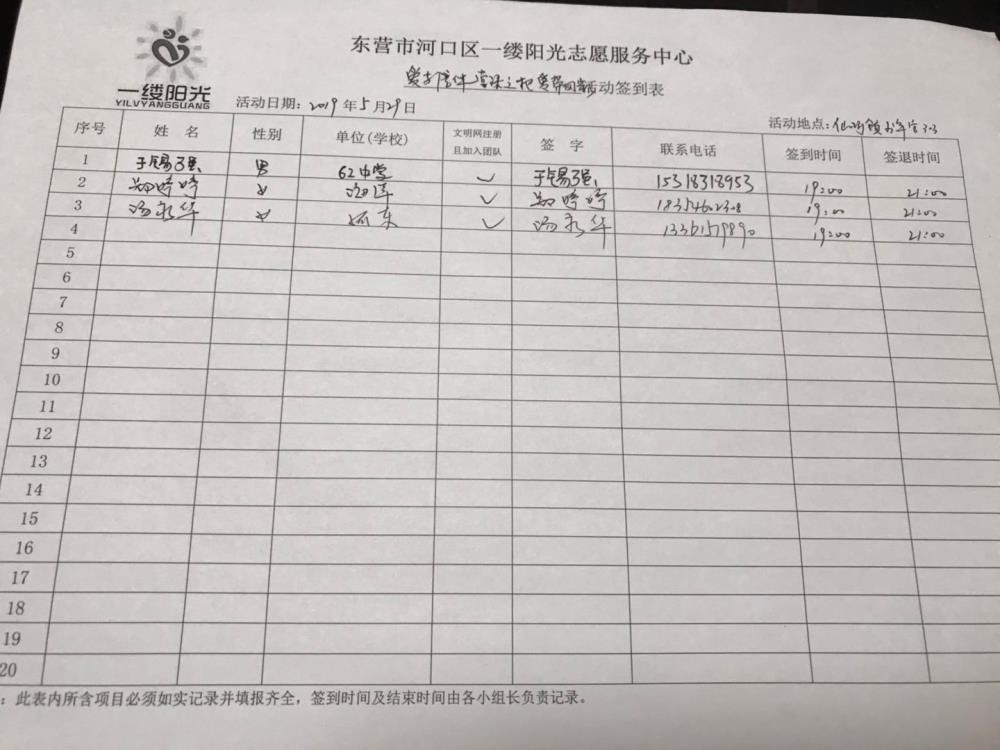 东营市河口区一缕阳光志愿服务中心
活动签到表
一缕阳光
YILVYANGGUANG
活动日期：2019 年 5 月 29 日
活动地点：仙河镇
序号 姓 名 性别 单位(学校) 文明网注册且加入团队 签 字 联系电话 签到时间 签退时间
1 于锡强 男 62中学 ✓ 于锡强 15318318953 19:00 21:00
2 郑婷婷 女 ✓ 郑婷婷 19:00 21:00
3 汤永华 女 孤东 ✓ 汤永华 19:00 21:00
4
5
6
7
8
9
10
11
12
13
14
15
16
17
18
19
20
：此表内所含项目必须如实记录并填报齐全，签到时间及结束时间由各小组长负责记录。